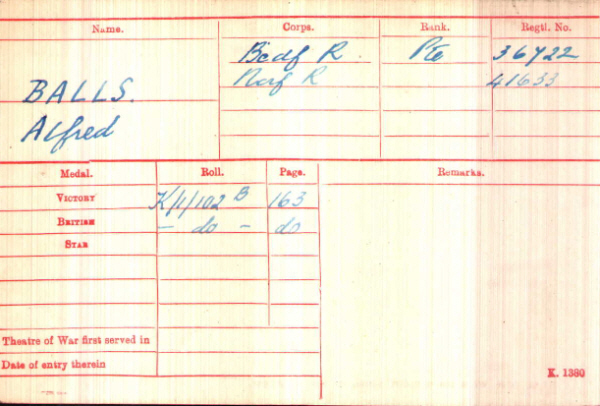 Name. Corps. Rank. Regtl. No.
Bedf R. Pte 36722
Norf R 41633
BALLS.
Alfred
Medal. Roll. Page. Remarks.
VICTORY K/1/102 B 163
BRITISH - do - do
STAR
Theatre of War first served in
Date of entry therein
K. 1380